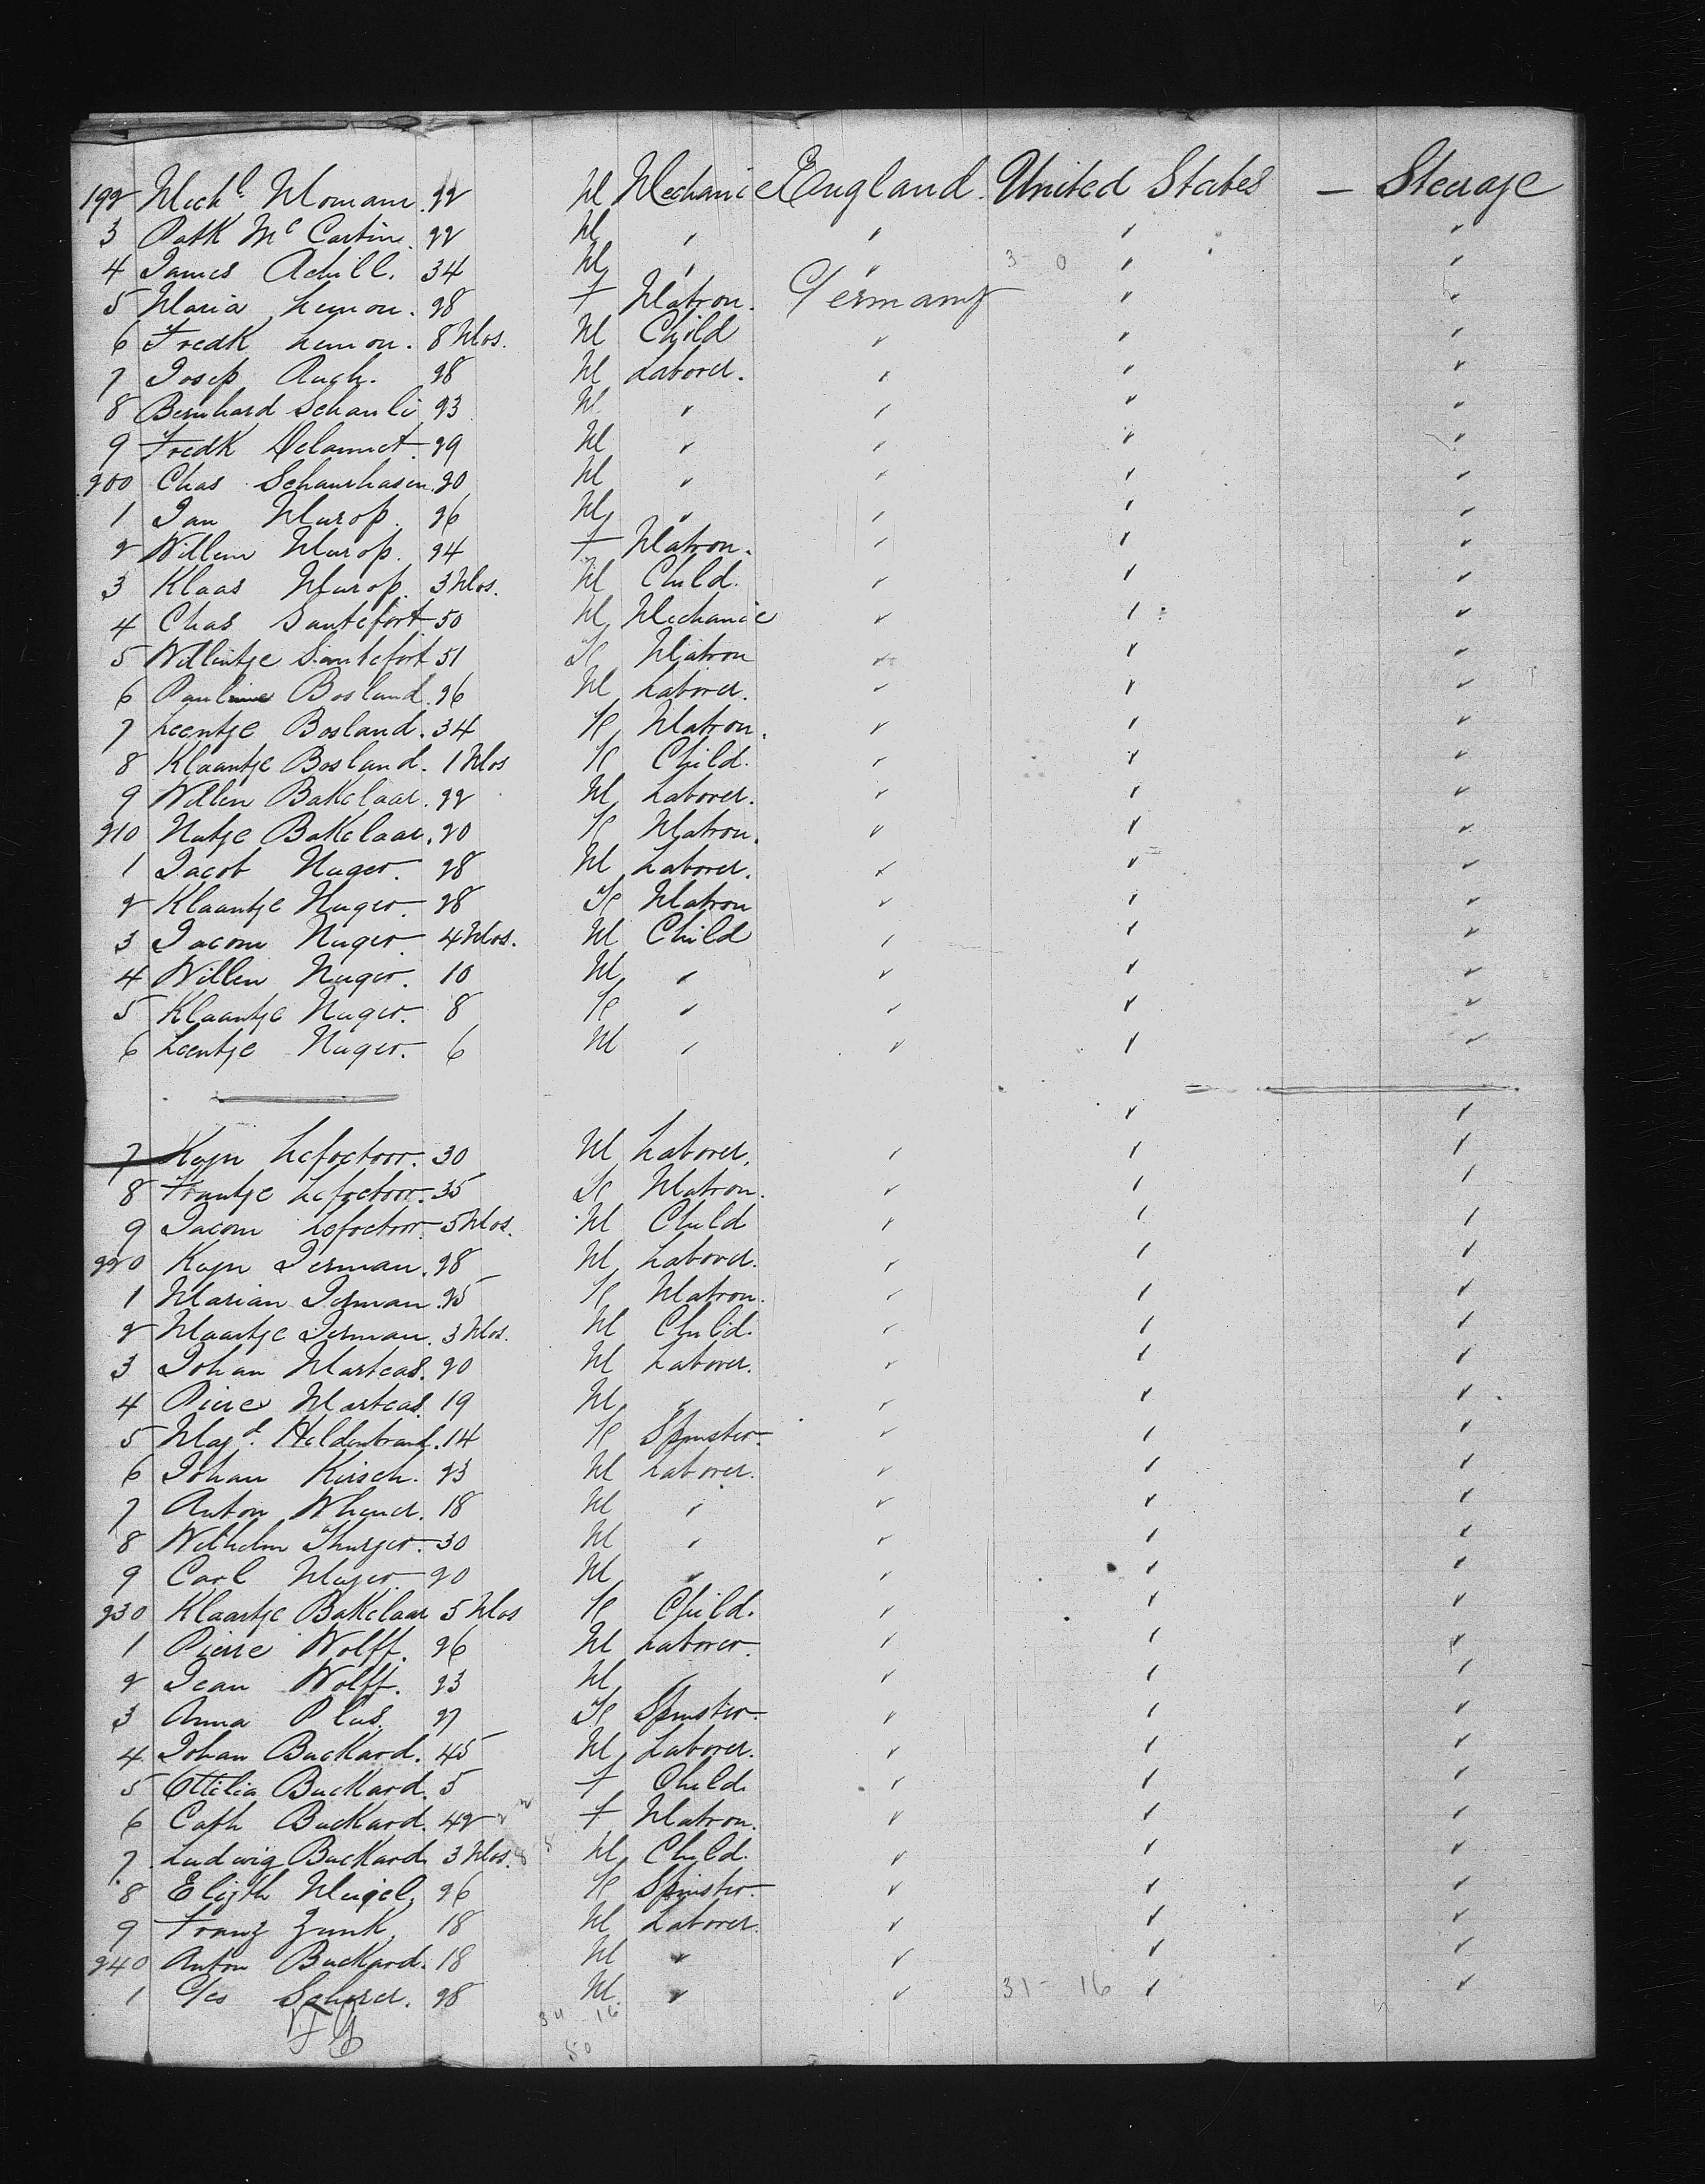 192 Mich.l Momam. 22 M Mechanic England. United States — Steerage
3 Patk Mc Cartin. 22 M " " " "
4 James Achill. 34 M " " " "
5 Maria Lemon. 28 F Matron. Germany " "
6 Fredk Lemon. 8 Mos. M Child " " "
7 Josep Auch. 28 M Laborer. " " "
8 Bernhard Schauli 23 M " " " "
9 Fredk Delamet. 29 M " " " "
200 Chas Schaurhasen. 20 M " " " "
1 Jan Murop. 26 M " " " "
2 Willem Murop. 24 F Matron. " " "
3 Klaas Murop. 3 Mos. M Child. " " "
4 Chas Santefort 50 M Mechanic " " "
5 Willintje Santefort 51 F Matron " " "
6 Paul Bosland. 26 M Laborer. " " "
7 Leentje Bosland. 34 F Matron. " " "
8 Klaantje Bosland. 1 Mos F Child. " " "
9 Willen Bakelaar. 22 M Laborer. " " "
210 Nutje Bakelaar. 20 F Matron. " " "
1 Jacob Nuger. 28 M Laborer. " " "
2 Klaantje Nuger. 28 F Matron " " "
3 Jacom Nuger. 4 Mos. M Child " " "
4 Willen Nuger. 10 M " " " "
5 Klaantje Nuger. 8 F " " " "
6 Leentje Nuger. 6 M " " " "
7 Kryn Lefoctoor. 30 M Laborer. " " "
8 Frantje Lefoctoor. 35 F Matron. " " "
9 Jacom Lefoctoor. 5 Mos. M Child " " "
220 Kryn Jerman. 28 M Laborer. " " "
1 Marian Jerman. 25 F Matron. " " "
2 Maartje Jerman. 3 Mos. M Child. " " "
3 Johan Marteas. 20 M Laborer. " " "
4 Piere Marteas. 19 M " " " "
5 Magd. Heldenbrand. 14 F Spinster. " " "
6 Johan Kirsch. 23 M Laborer. " " "
7 Anton Wheuer. 18 M " " " "
8 Wilhelm Thurger. 30 M " " " "
9 Carl Meyer. 20 M " " " "
230 Klaartje Bakelaar 5 Mos F Child. " " "
1 Pierre Wolff. 26 M Laborer. " " "
2 Jean Wolff. 23 M " " " "
3 Anna Plus. 27 F Spinster. " " "
4 Johan Buckard. 45 M Laborer. " " "
5 Ottilia Buckard. 5 F Child " " "
6 Cath Buckard. 42 F Matron. " " "
7 Ludwig Buckard. 3 Mos. M Child. " " "
8 Eligth Meigel. 26 F Spinster. " " "
9 Franz Zunk 18 M Laborer. " " "
240 Anton Buckard. 18 M " " " "
1 Ges Scherer. 28 M " " 31 - 16 " "
34 - 16
50